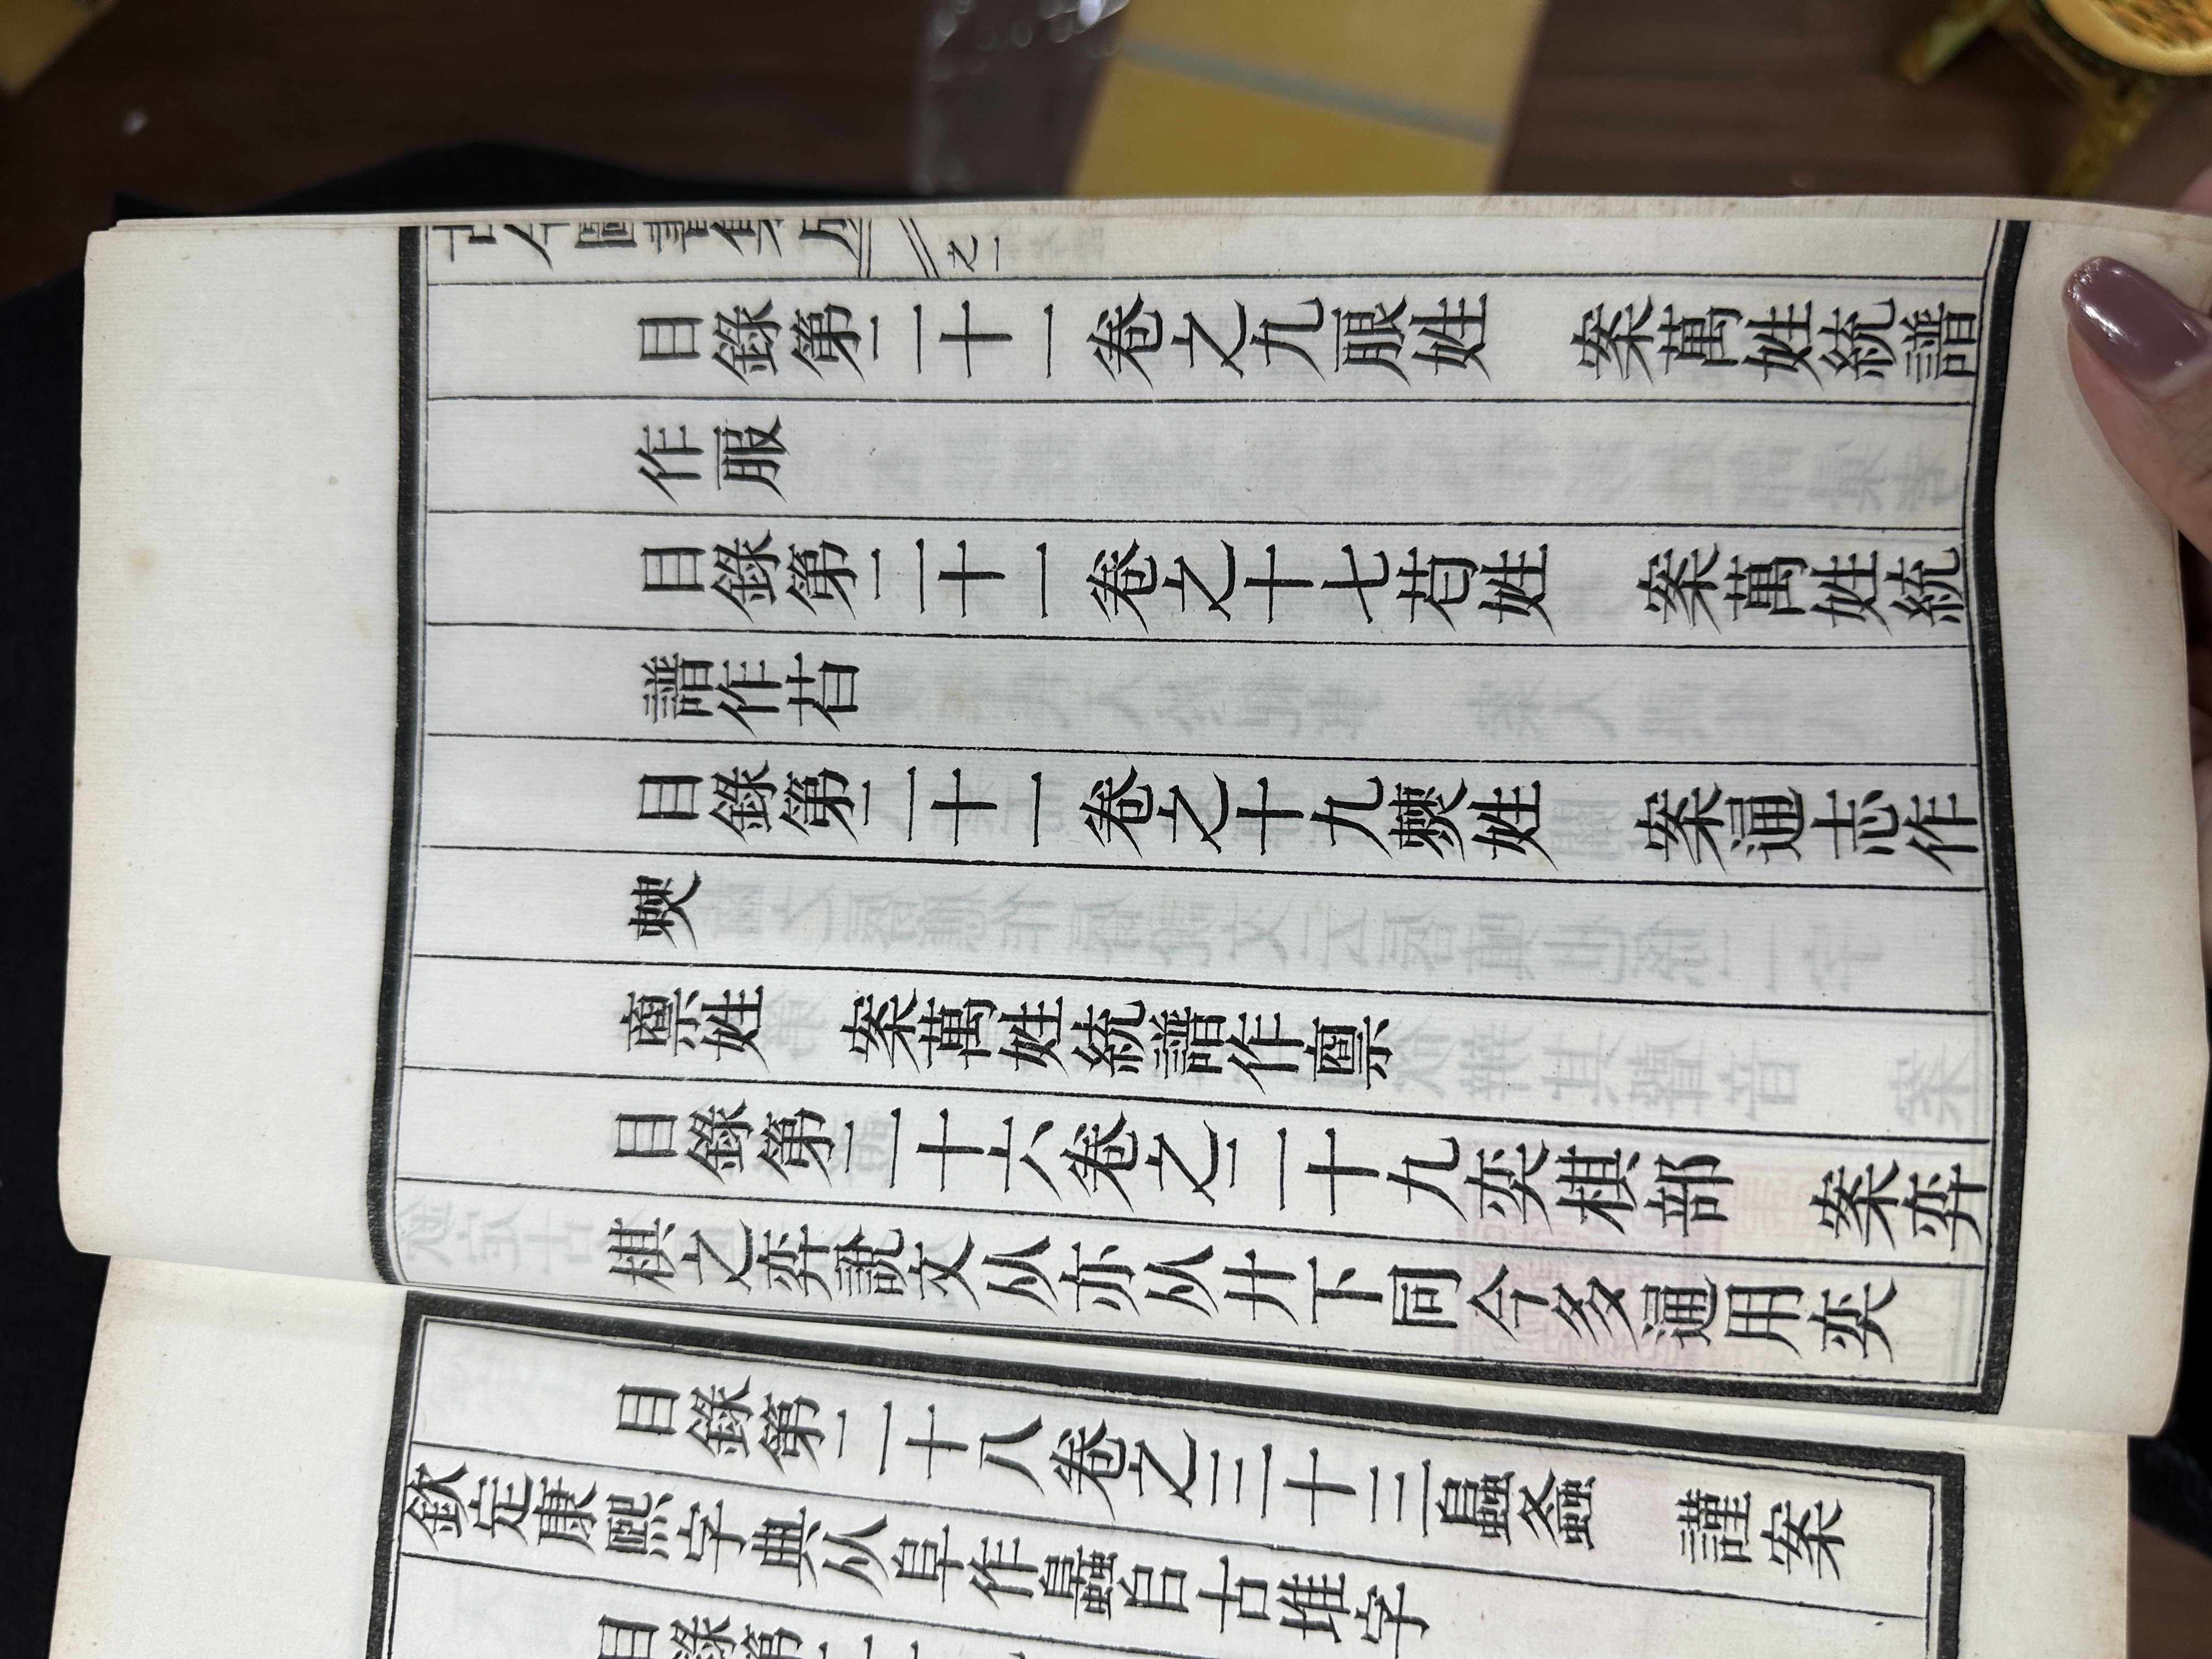 古今圖書集成
之一
目錄第二十一卷之九姓　案萬姓統譜
作服
目錄第二十一卷之十七姓　案萬姓統
譜作
目錄第二十一卷之十九姓　案通志作
姓　案萬姓統譜作
目錄第二十六卷之二十九奕棋部　案弈
棋之弈說文从亦从廾下同今多通用奕
目錄第二十八卷之三十三螽　謹案
欽定康熙字典从阜作䘀𠂤古堆字
目錄第二